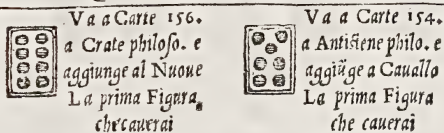 Va a Carte 156.
a Crate philoso. e
aggiunge al Nuoue
La prima Figura,
che cauerai
Va a Carte 154.
a Antistene philo. e
aggiũge a Cauallo
La prima Figura
che cauerai